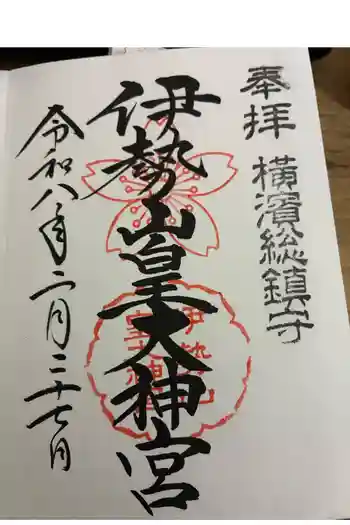 奉拝
横濱総鎮守
伊勢山皇大神宮
令和八年二月二十七日